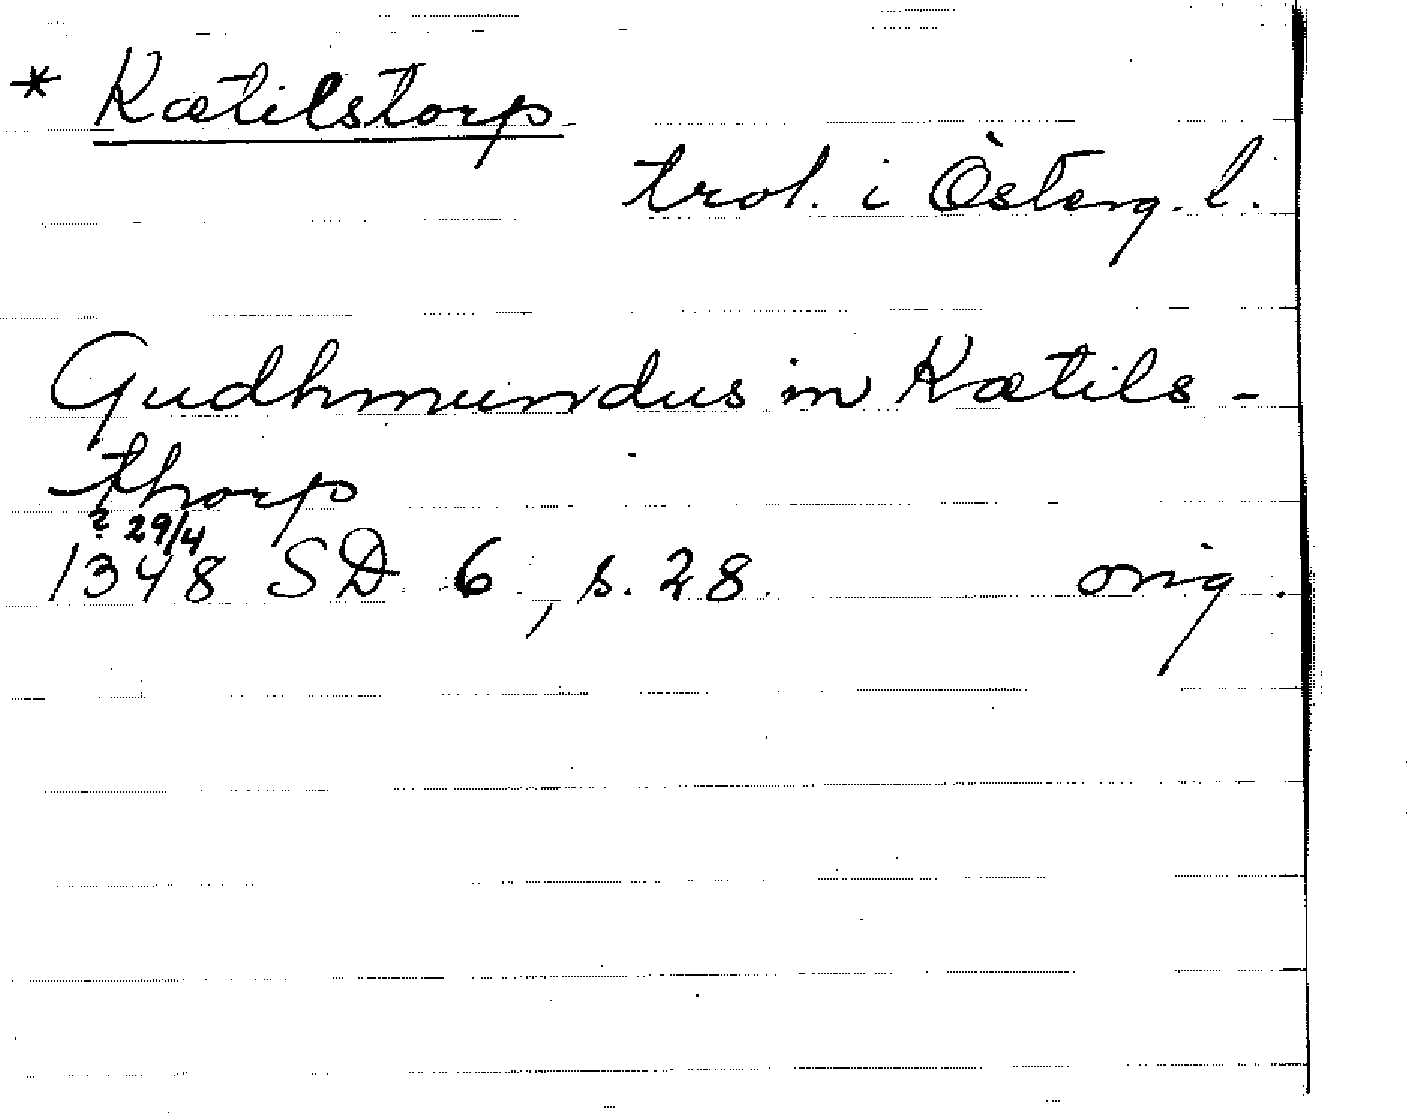 * Kætilstorp
trol. i Österg. l.
Gudhmundus in Kætils-
thorp
? 29/4
1348 SD 6, s. 28. orig.